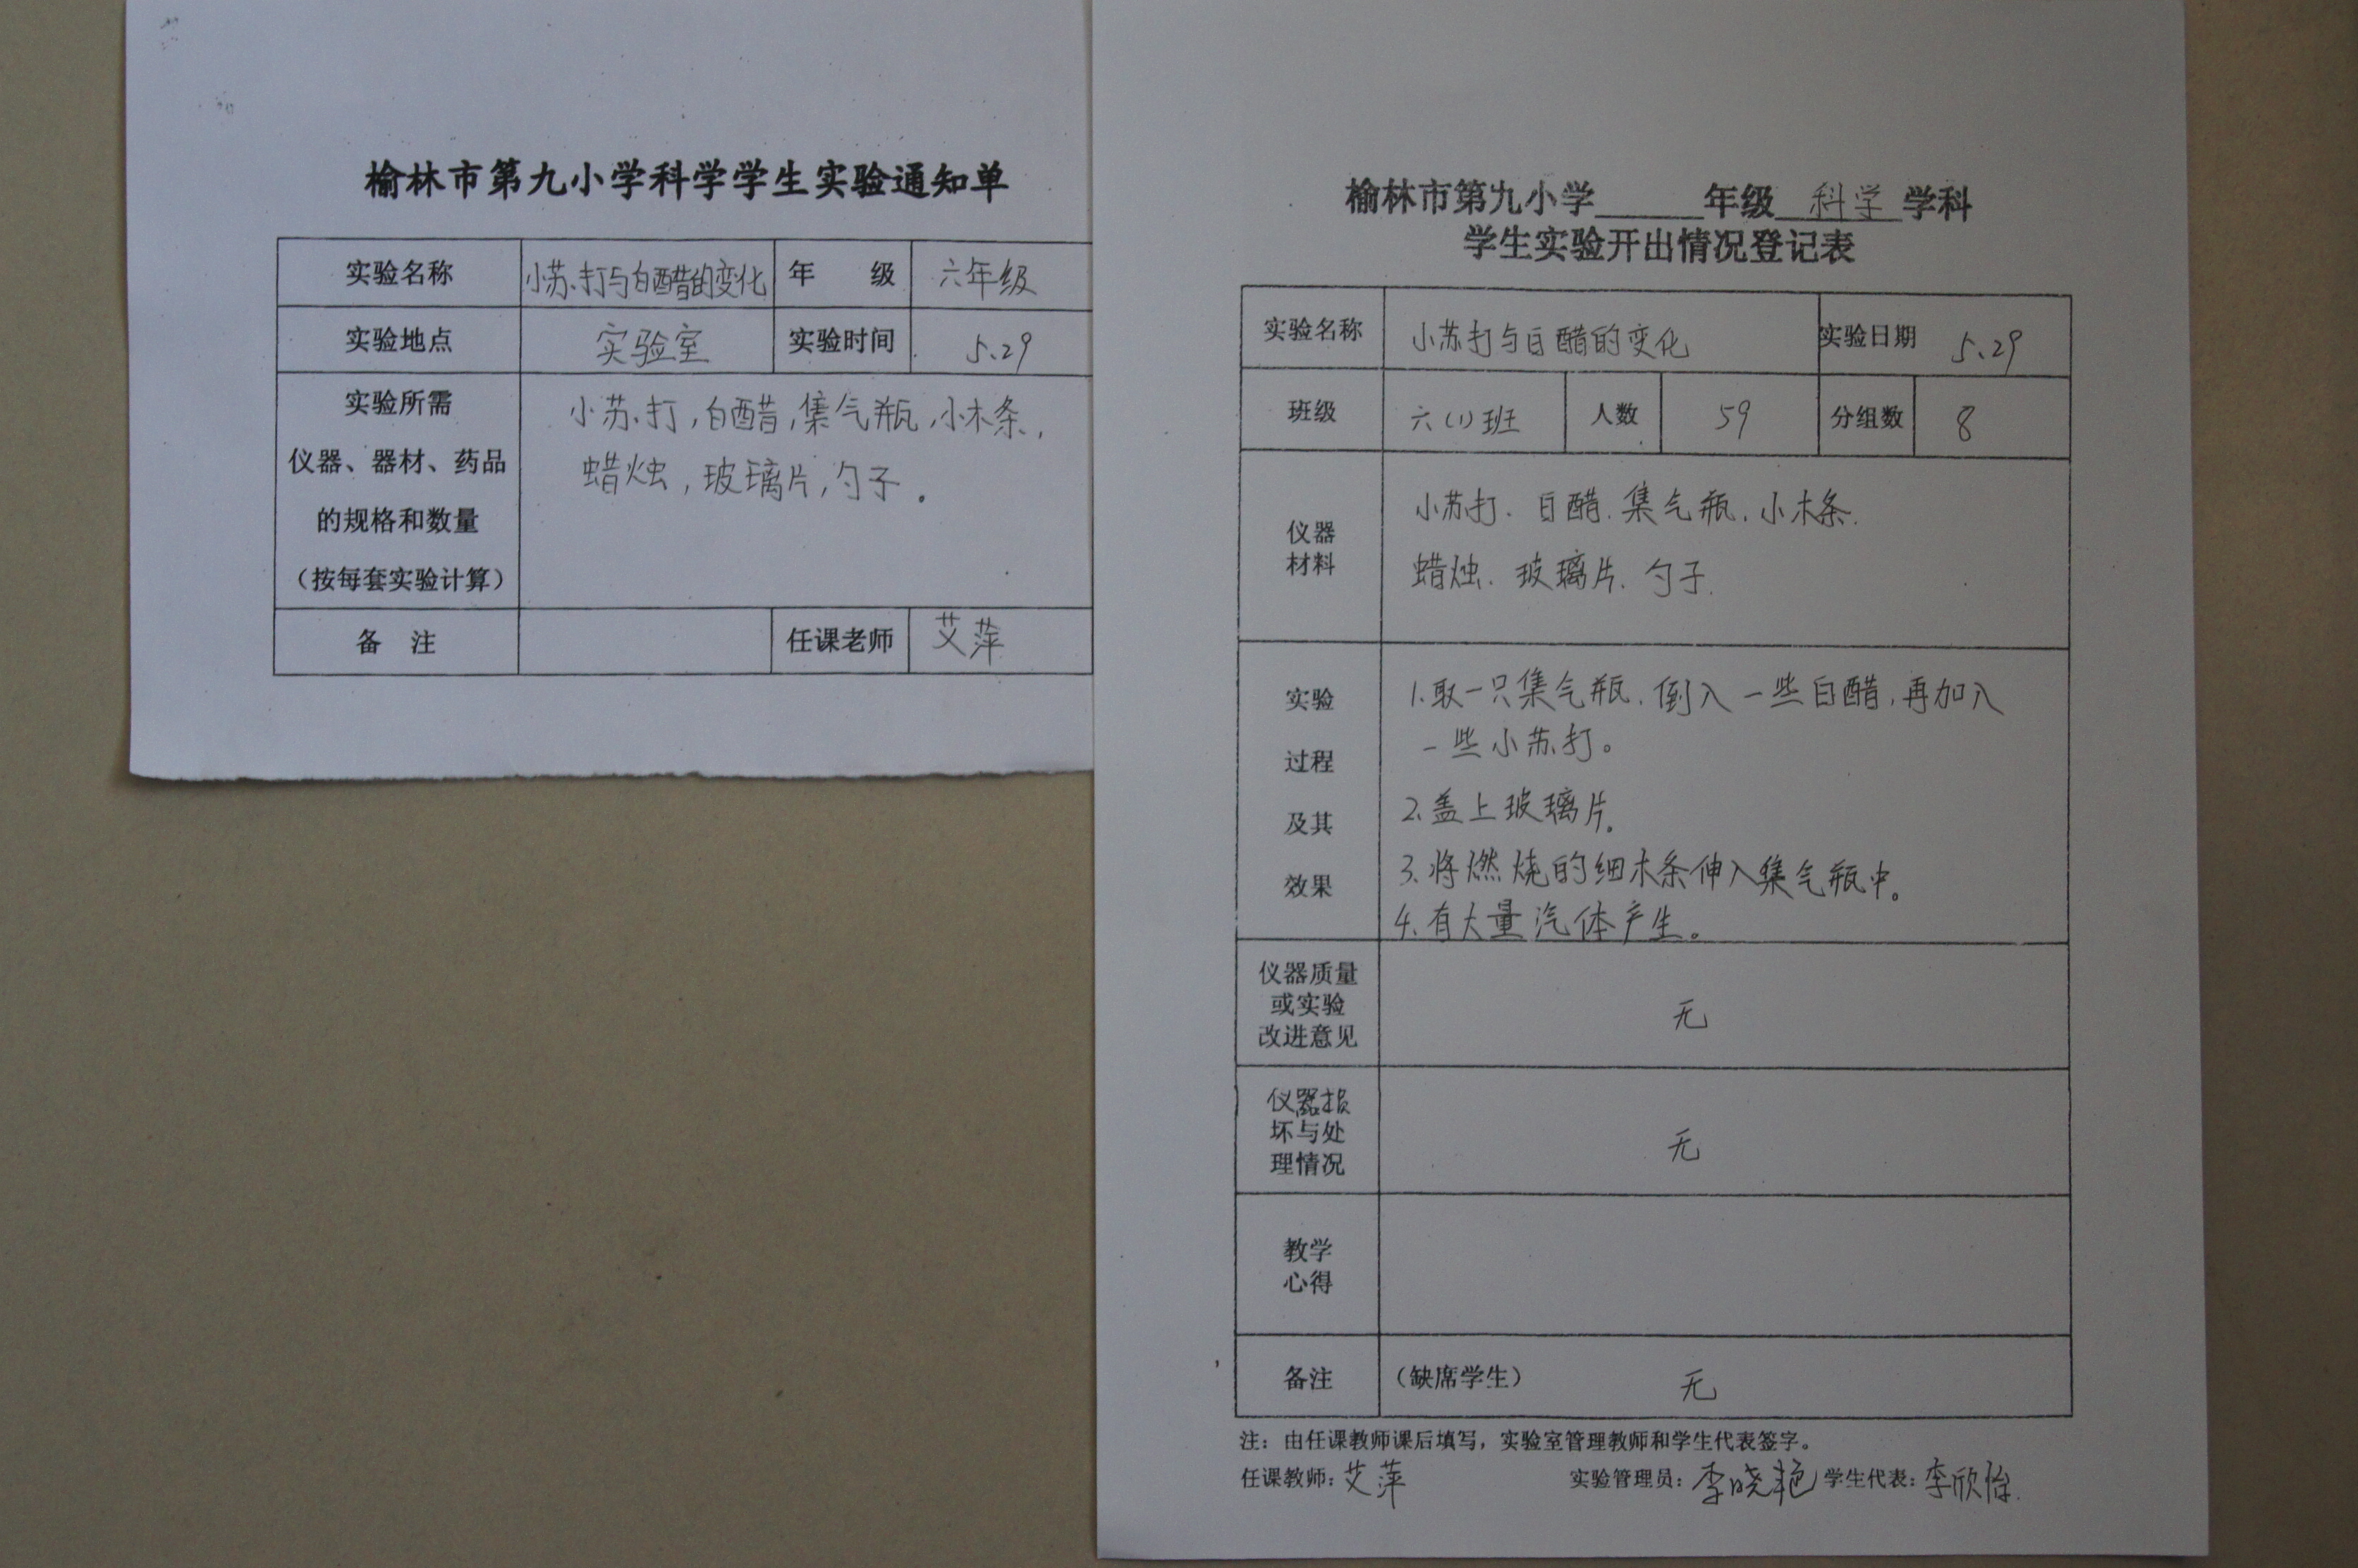 榆林市第九小学科学学生实验通知单
实验名称 小苏打与白醋的变化 年 级 六年级
实验地点 实验室 实验时间 5.29
实验所需
仪器、器材、药品
的规格和数量
（按每套实验计算）
小苏打，白醋，集气瓶，小木条，
蜡烛，玻璃片，勺子。
备 注 任课老师 艾萍
榆林市第九小学____年级 科学 学科
学生实验开出情况登记表
实验名称 小苏打与白醋的变化 实验日期 5.29
班级 六(1)班 人数 59 分组数 8
仪器
材料
小苏打、白醋、集气瓶、小木条、
蜡烛、玻璃片、勺子.
实验
过程
及其
效果
1.取一只集气瓶，倒入一些白醋，再加入
一些小苏打。
2.盖上玻璃片。
3.将燃烧的细木条伸入集气瓶中。
4.有大量汽体产生。
仪器质量
或实验
改进意见
无
仪器损
坏与处
理情况
无
教学
心得
备注 （缺席学生） 无
注：由任课教师课后填写，实验室管理教师和学生代表签字。
任课教师：艾萍 实验管理员：李晓艳 学生代表：李欣怡